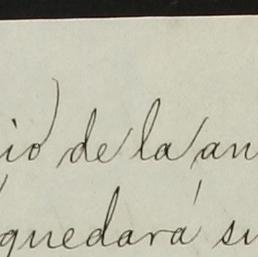 io de la an
quedará su